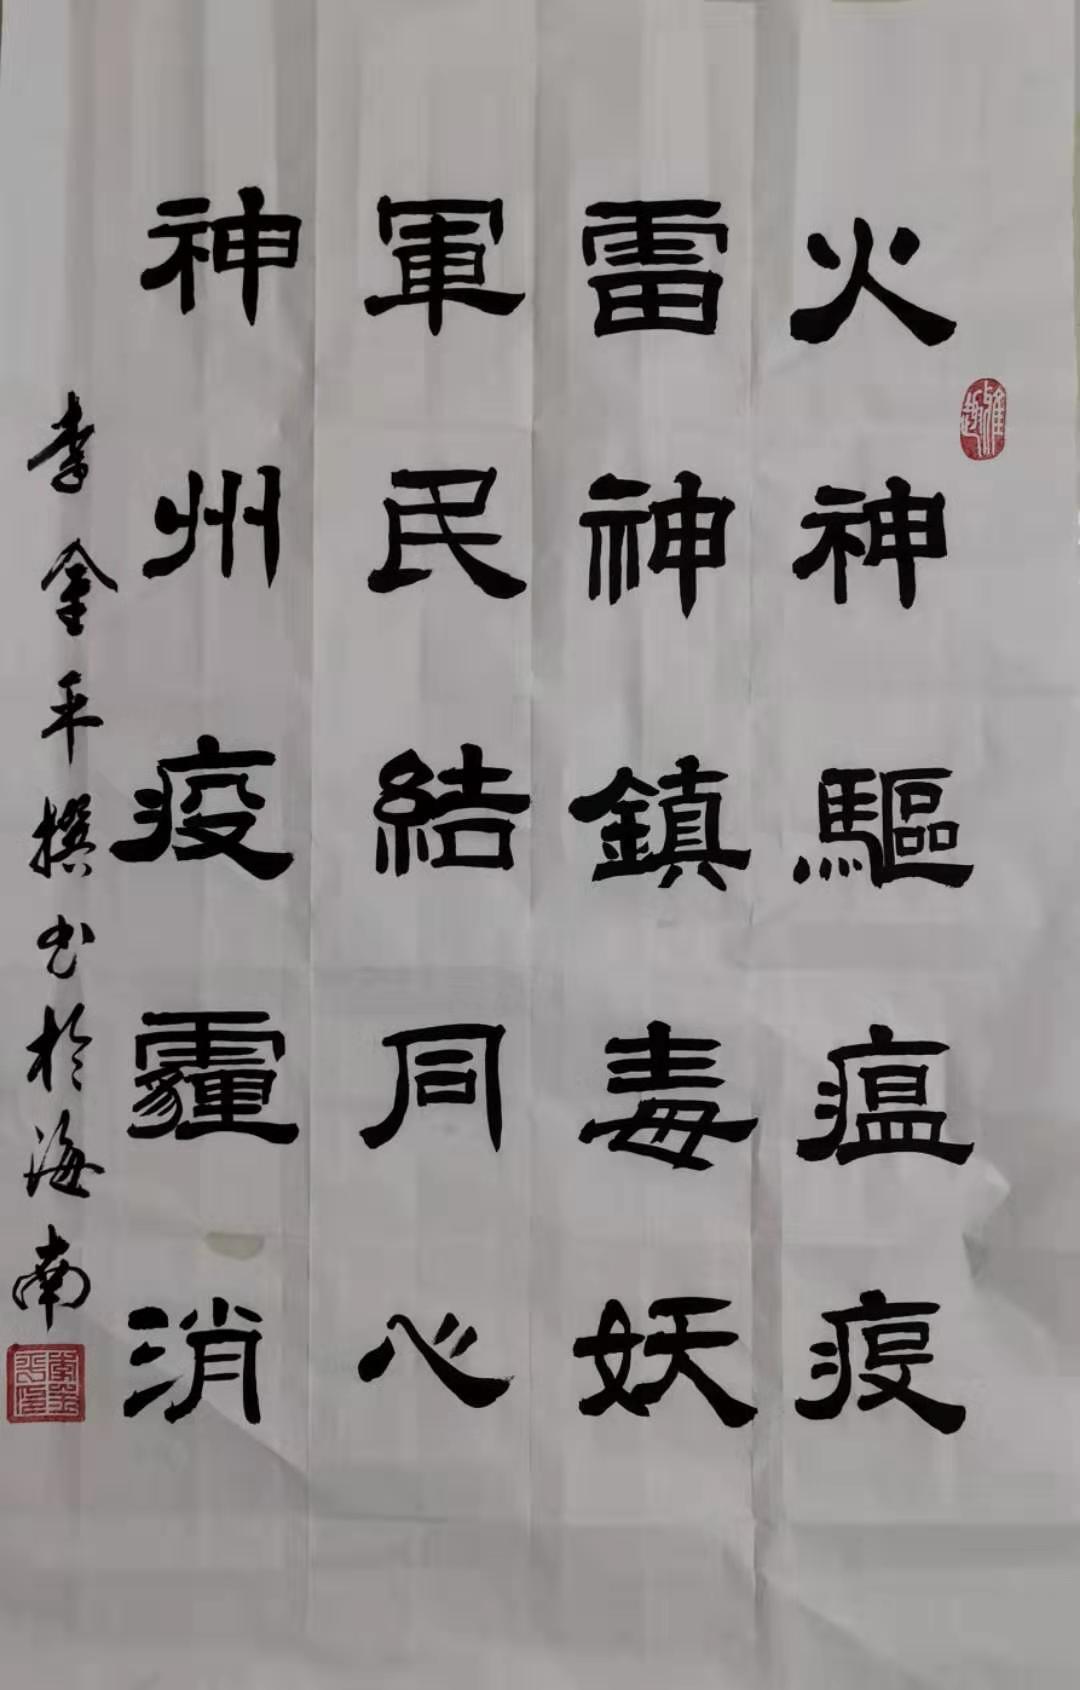 火神驅瘟疫
雷神鎮毒妖
軍民結同心
神州疫霾消
李金平撰书於海南
雅趣